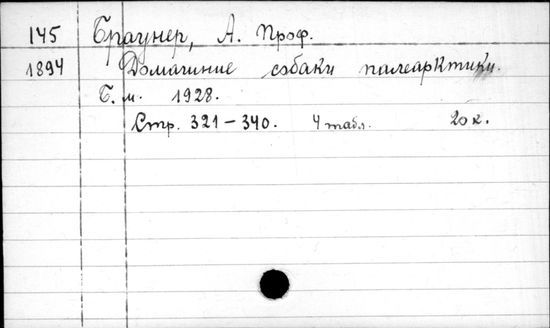 145 Браунер, А. Проф.
1894 Домашние собаки палеарктики.
Б. м. 1928.
Стр. 321-340. 4 табл. 20 к.